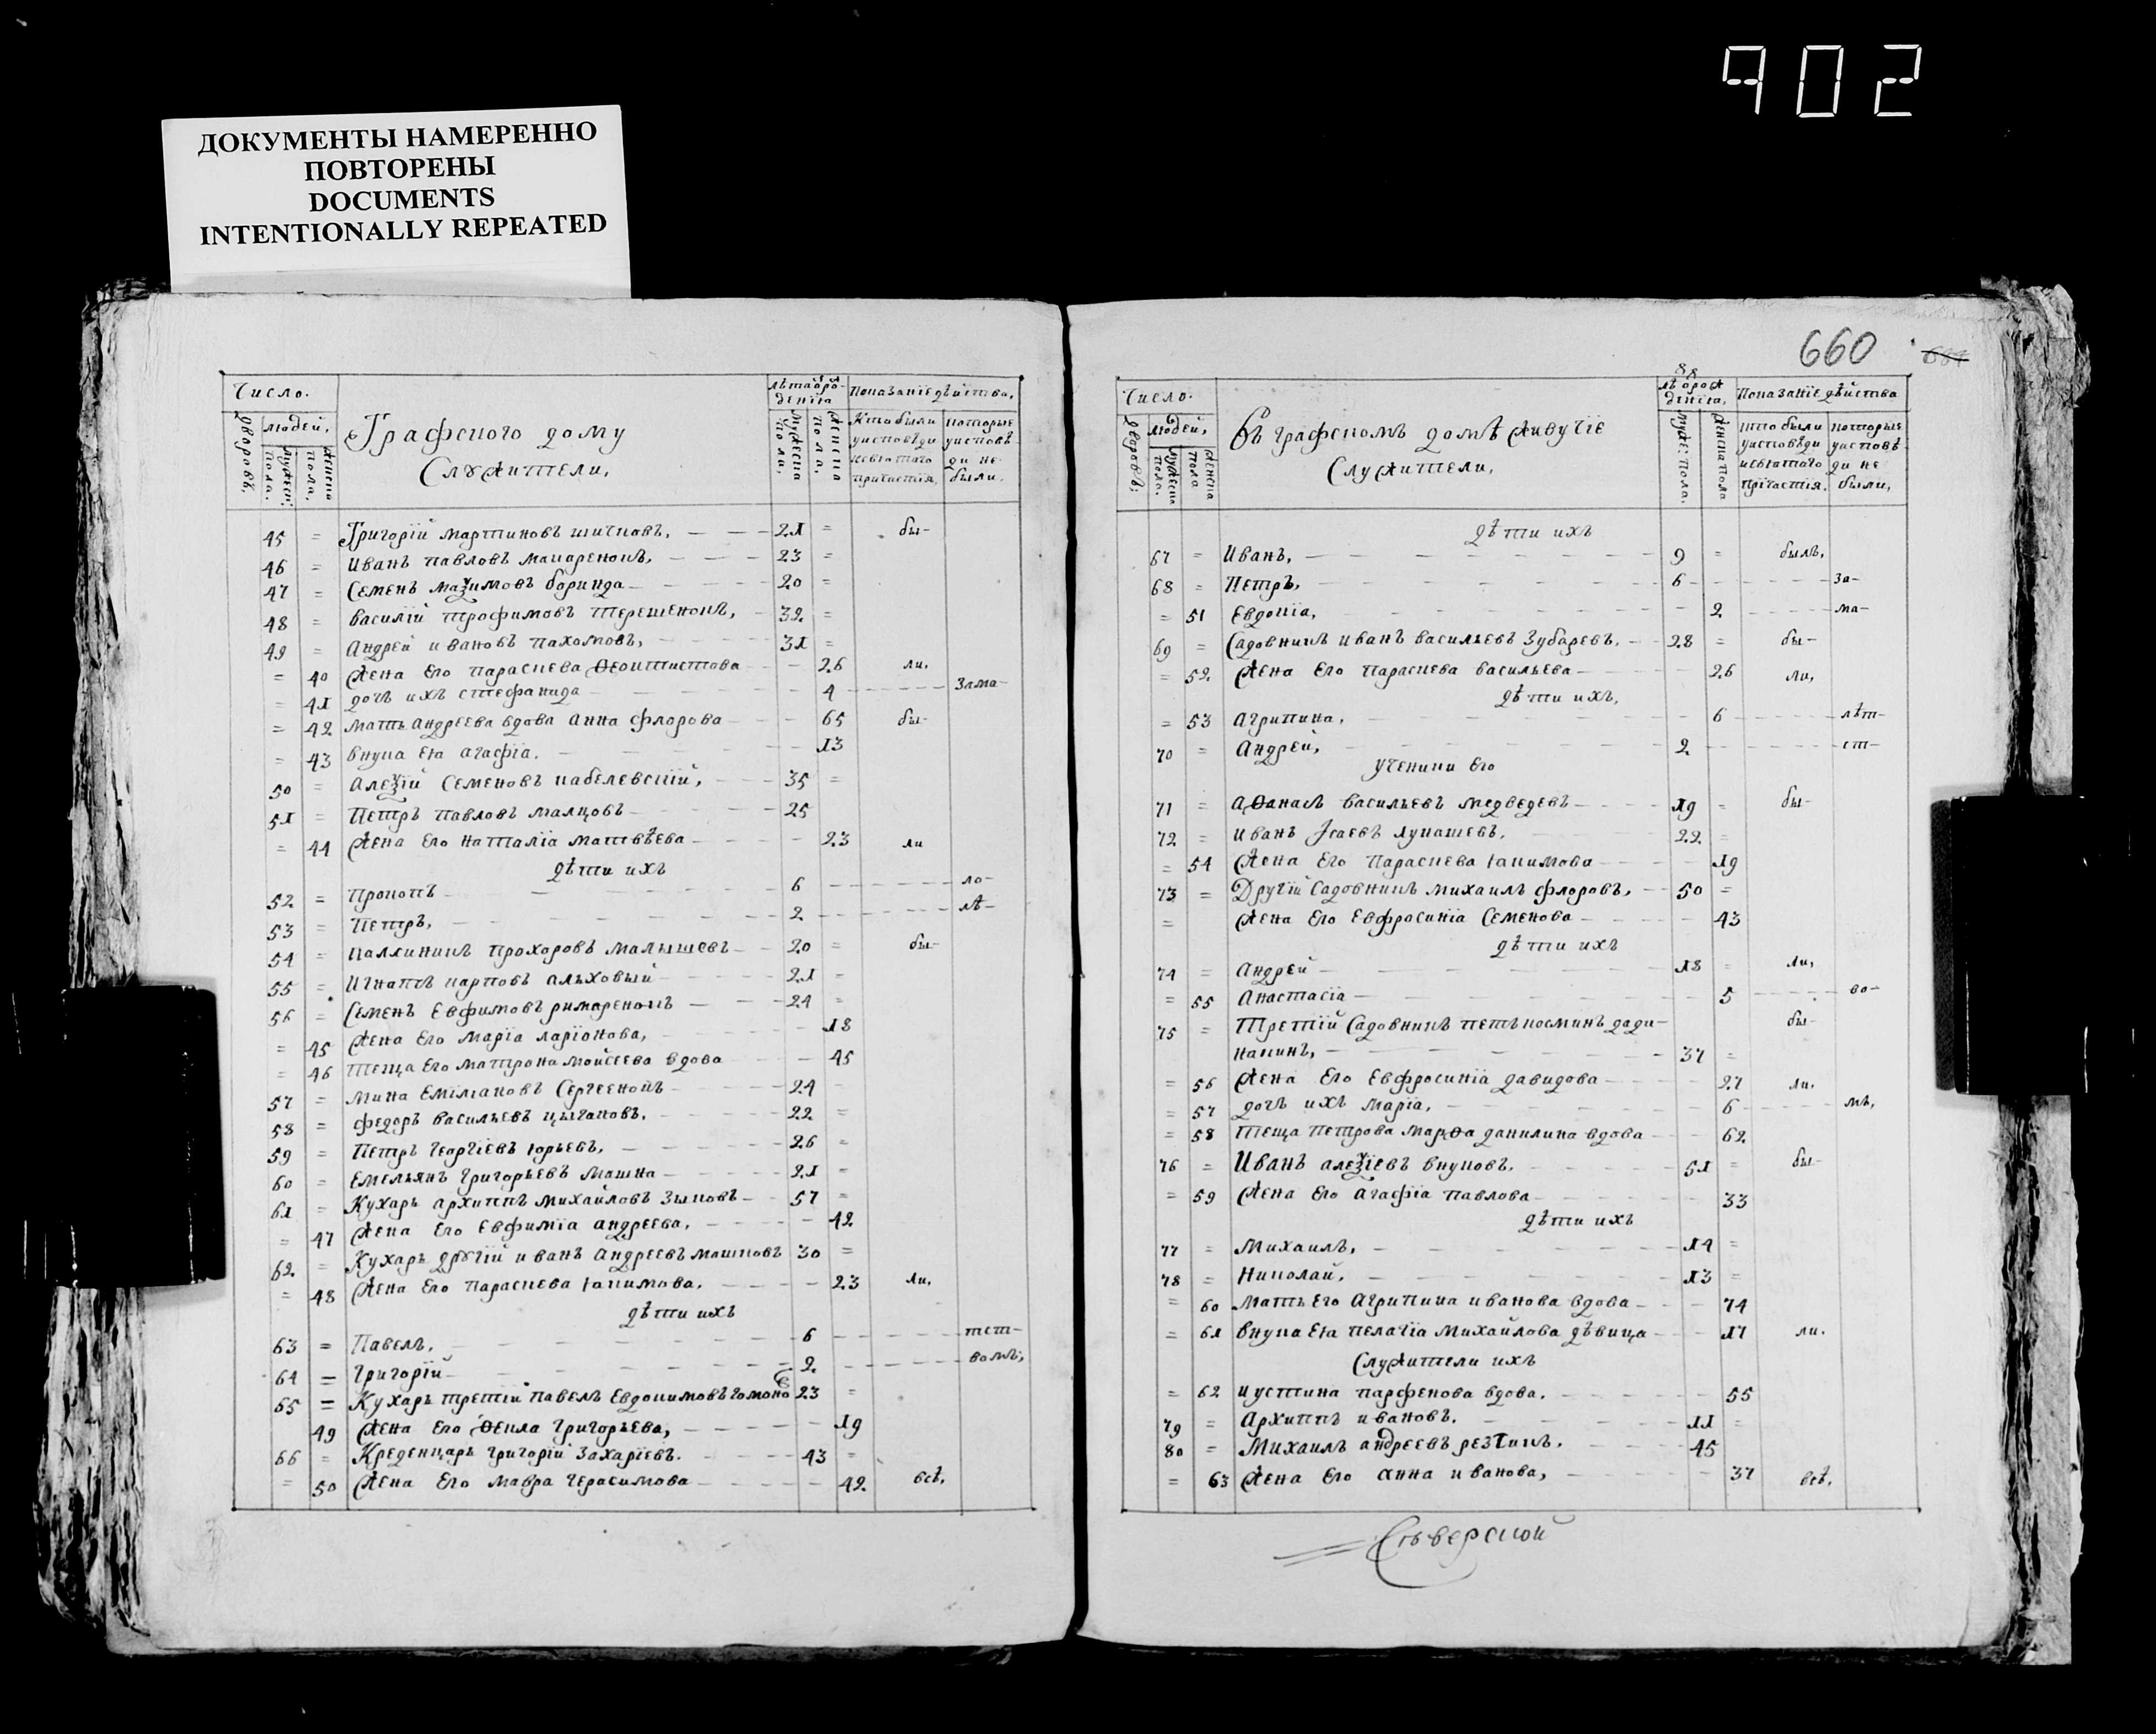 902
ДОКУМЕНТЫ НАМЕРЕННО
ПОВТОРЕНЫ
DOCUMENTS
INTENTIONALLY REPEATED
Число.
дворовъ.
людей.
мужеск: пола.
женска пола.
Графского дому
Служители.
лѣта отъ рождения
мужеска пола.
женска пола.
Показанїе дѣйства.
Кто были у исповѣди и святаго причастїя.
которые у исповѣди не были.
45 = Григорїй Мартиновъ Шичковъ. 21 = бы-
46 = Иванъ Павловъ Макаренокъ, 23 =
47 = Семенъ Маѯимовъ Боринда 20 =
48 = Василїй Трофимовъ Терешенокъ, 32 =
49 = Андрей Ивановъ Пахомовъ, 31 =
= 40 Жена его Параскева Ѳеоктистова 26 ли,
= 41 дочь ихъ Стефанида 4 зама-
= 42 мать Андреева вдова Анна Флорова 65 бы-
= 43 внука ея Агафїа. 13
50 = Алеѯїй Семеновъ Кабелевскїй, 35 =
51 = Петръ Павловъ Малцовъ 25
= 44 Жена его Наталїа Матвѣева 23 ли
дѣти ихъ
52 = Прокопъ 6 ло-
53 = Петръ, 2 лѣ-
54 = Калкиникъ Прохоровъ Малышевъ 20 = бы-
55 = Игнатъ Карповъ Альховый 21 =
56 = Семенъ Евфимовъ Римаренокъ 24 =
= 45 Жена его Марїа Ларїонова, 18
= 46 Теща его Матрона Моисеева вдова 45
57 = Мина Емілїановъ Сергеенокъ 24 -
58 = Федоръ Васильевъ Цыгановъ. 22 =
59 = Петръ Георгїевъ Юрьевъ. 26 =
60 = Емельянъ Григорьевъ Машка 21 =
61 = Кухарь Архиппъ Михайловъ Зыковъ 57 =
= 47 Жена его Евфимїа Андреева, 42
62 = Кухарь другїй Иванъ Андреевъ Машковъ 30 =
= 48 Жена его Параскева Іакимова. 23 ли,
дѣти ихъ
63 = Павелъ, 6 тст-
64 = Григорїй 2 вомъ,
65 = Кухарь третїй Павелъ Евдокимовъ Гомоно 23 =
49 Жена его Ѳекла Григорьева, 19
66 = Креденцарь Григорїй Захарїевъ. 43 =
= 50 Жена его Мавра Герасимова 42 всѣ,
660
Число.
дворовъ:
людей.
мужеска пола.
женска пола
Въ графскомъ домѣ живучїе
Служители.
88
лѣ. отъ рож денїа,
муже: пола.
женска пола
Показанїе дѣйства
кто были у исповѣди и святаго прїчастїя.
которые у исповѣди не были,
дѣти ихъ
67 = Иванъ, 9 = былъ,
68 = Петръ, 6 за-
= 51 Евдокїа, 2 ма-
69 = Садовникъ Иванъ Васильевъ Зубаревъ. 28 = бы-
= 52 Жена его Параскева Васильева 26 ли,
дѣти ихъ,
= 53 Агрипина, 6 лѣт-
70 = Андрей, 2 ст-
Ученики его
71 = Аѳанасъ Васильевъ Медведевъ 19 = бы-
72 = Иванъ Ісаевъ Лукашевъ. 22 =
= 54 Жена его Параскева Іакимова 19
73 = Другїй Садовникъ Михаилъ Флоровъ, 50 =
= Жена его Евфросинїа Семенова 43
дѣти ихъ
74 = Андрей 18 = ли,
= 55 Анастасїа 5 во-
75 = Третїй Садовникъ Петъ Косминъ Дади- бы-
накинъ, 37 =
= 56 Жена его Евфросинїа Давидова 27 ли.
= 57 дочь ихъ Марїа, 6 мъ,
= 58 Теща Петрова Марѳа Данилина вдова 62
76 = Иванъ Алеѯїевъ Внуковъ. 51 = бы-
= 59 Жена его Агафїа Павлова 33
дѣти ихъ
77 = Михаилъ, 14 =
78 = Николай. 13 =
= 60 Мать его Агрипина Иванова вдова 74
= 61 Внука ея Пелагїа Михайлова дѣвица 17 ли.
Служители ихъ
= 62 Иустина Парфенова вдова. 55
79 = Архиппъ Ивановъ. 11 =
80 = Михаилъ Андреевъ Резчикъ. 45
= 63 Жена его Анна Иванова, 37 всѣ,
Сѣверской